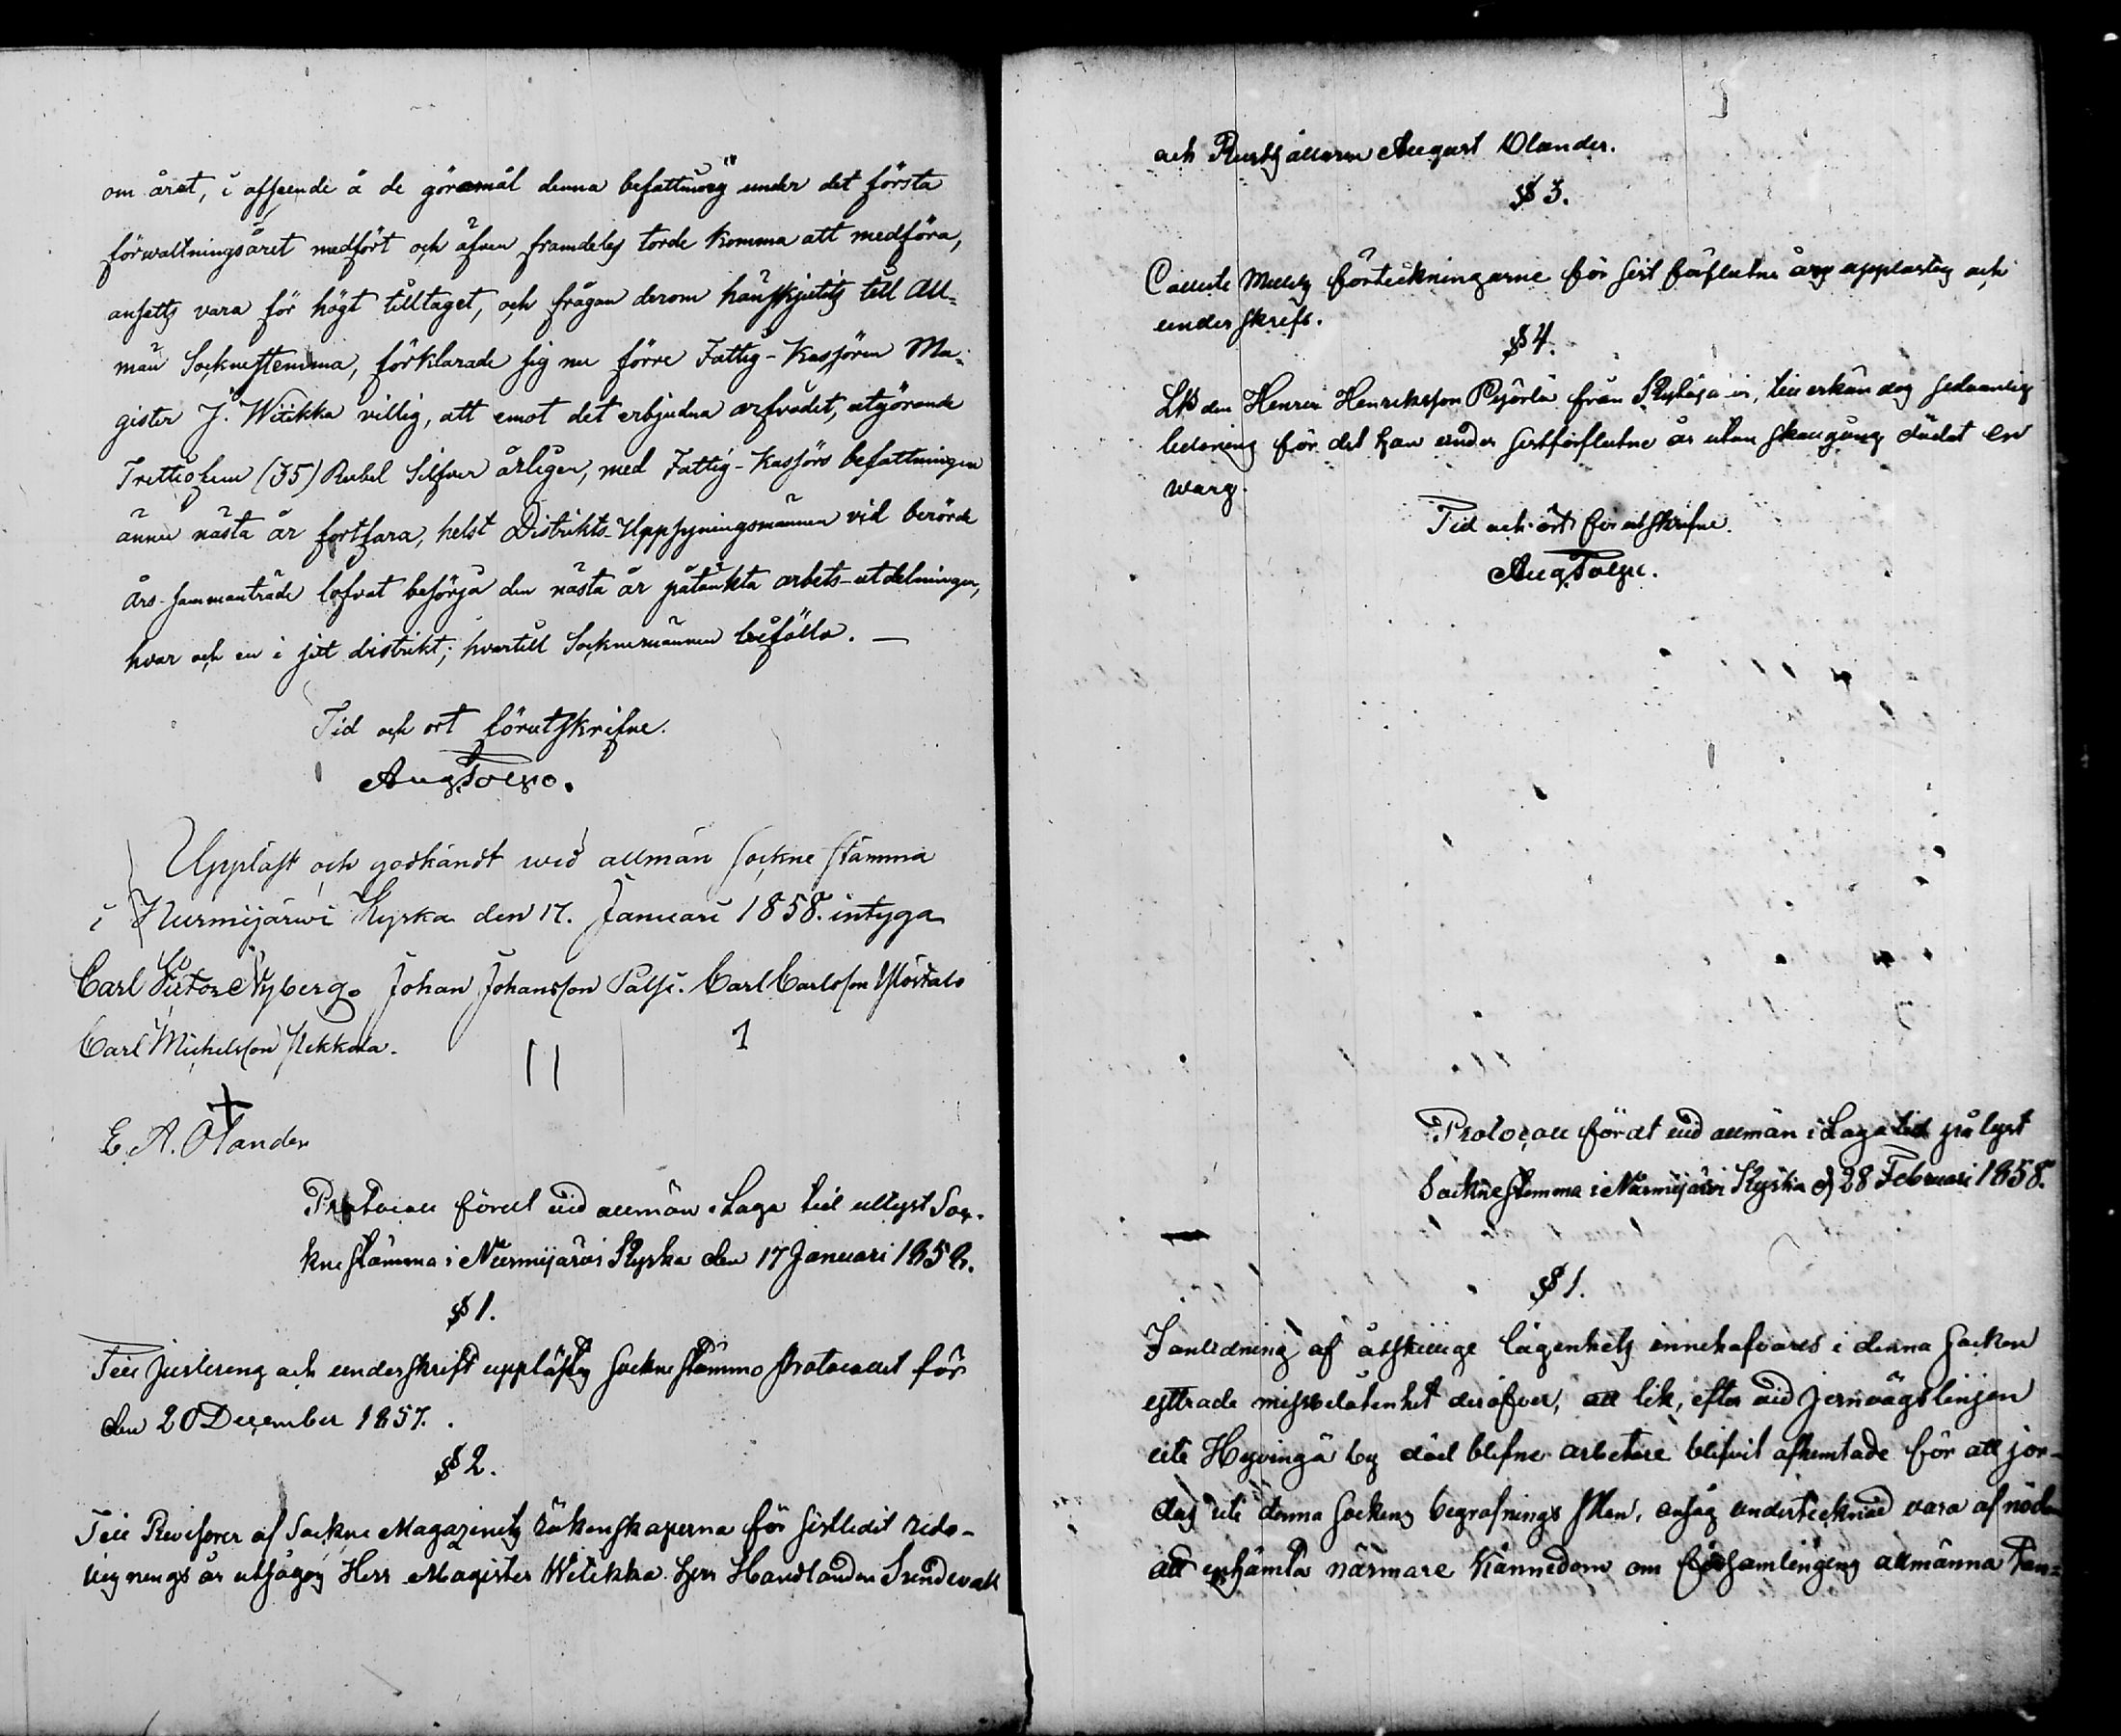 om året, i afseende å de göromål denna befattning under det första
förwaltningsåret medfört och äfven framdeles torde komma att medföra,
ansetts vara för högt tilltaget, och frågan derom hänskjutits till All-
män Sockenstemma, förklarade sig nu förre Fattig-Kassören Ma-
gister J. Witikka villig, att emot det erbjudna arfvodet, utgörande
Trettiofem (35) Rubel Silfver årligen, med Fattig-Kassörs befattningen
ännu nästa år fortfara, helst Distrikts-Uppsyningsmännen vid berörde
års-sammanträde lofvat besörja den nästa år påtänkta arbets-utdelningen,
hvar och en i sitt distrikt; hvartill Sockenemännen biföllo. —
Tid och ort förutskrifne.
Aug Tolpo.
Uppläst och godkändt wid allmän sockne stämma
i Nurmijärwi Kyrka den 17. Januari 1858. intyga
Carl Victor Nyberg. Johan Johansson Palsi. Carl Carlsson Ylöstalo
Carl Michelsson Pekkola.
E. A. Olander
Protocoll fördt vid allmän i Laga tid utlyst Soc-
knestämma i Nurmijärvi Kyrka den 17 Januari 1858.
§ 1.
Till justering och underskrift upplästes Sockne stämmo Protocollet för
den 20 December 1857.
§ 2.
Till Revisorer af Sockne Magazinets räkenskaperna för sistledit redo-
visnings år utsågos Herr Magister Witikka Herr Handlanden Sundvall
och Rusthållaren August Olander.
§ 3.
Collecte Medels förteckningarne för sist förflutne år upplästes och
underskrefs.
§ 4.
Lb den Henric Henriksson Pejörlä från tillerkändes sedvanlig
belöning för det han under sistförflutne år utan skallgång dödat en
warg.
Tid och ort förutskrifne.
Aug Tolpo.
Protocoll fördt vid allmän i Laga tid pålyst
Sockne stemma i Nurmijärvi Kyrka d 28 Februari 1858.
§ 1.
I anledning af åtskillige lägenhets innehafvares i denna Socken
yttrade missbelåtenhet deröfver, att lik, efter vid jernvägslinjen
uti Hyvingä by död blefne arbetare blifvit afhemtade för att jor-
das uti denna Sockens begrafnings plan, ansåg undertecknad vara af nöden
att inhämta närmare kännedom om församlingens allmänna tan-